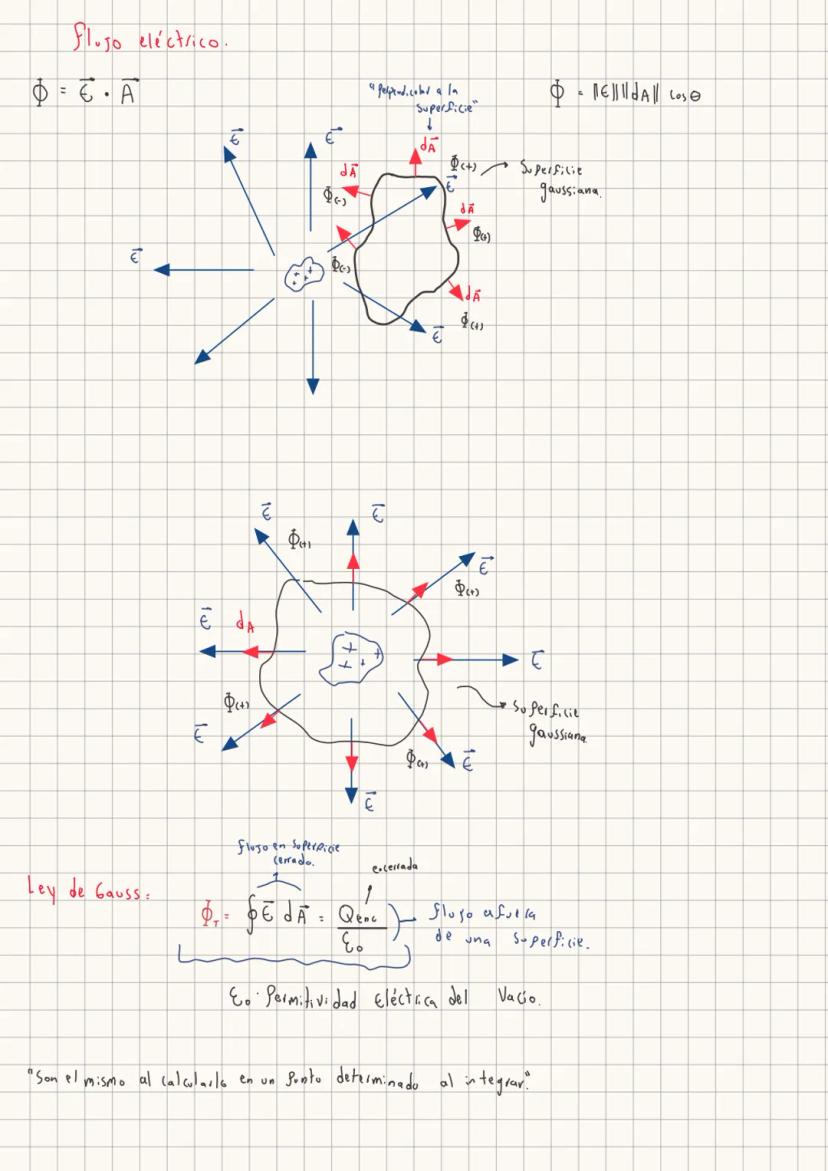 Flujo eléctrico.
Φ = E⃗ · A⃗
"Perpendicular a la
superficie"
Φ = ||E|| ||dA|| cosθ
E⃗
E⃗
dA⃗
dA⃗
Φ(+)
Superficie
gaussiana.
E⃗
Φ(-)
dA⃗
Φ(+)
E⃗
Φ(-)
dA⃗
Φ(+)
E⃗
E⃗
E⃗
Φ(+)
E⃗
Φ(+)
E⃗
dA
E⃗
Φ(+)
Superficie
gaussiana
E⃗
Φ(+)
E⃗
E⃗
Flujo en superficie
cerrado.
encerrada
Ley de Gauss:
ΦT = ∮ E⃗ dA⃗ = Qenc / ε₀
flujo afuera
de una superficie.
ε₀ · Permitividad Eléctrica del Vacío.
"Son el mismo al calcularlo en un punto determinado al integrar"